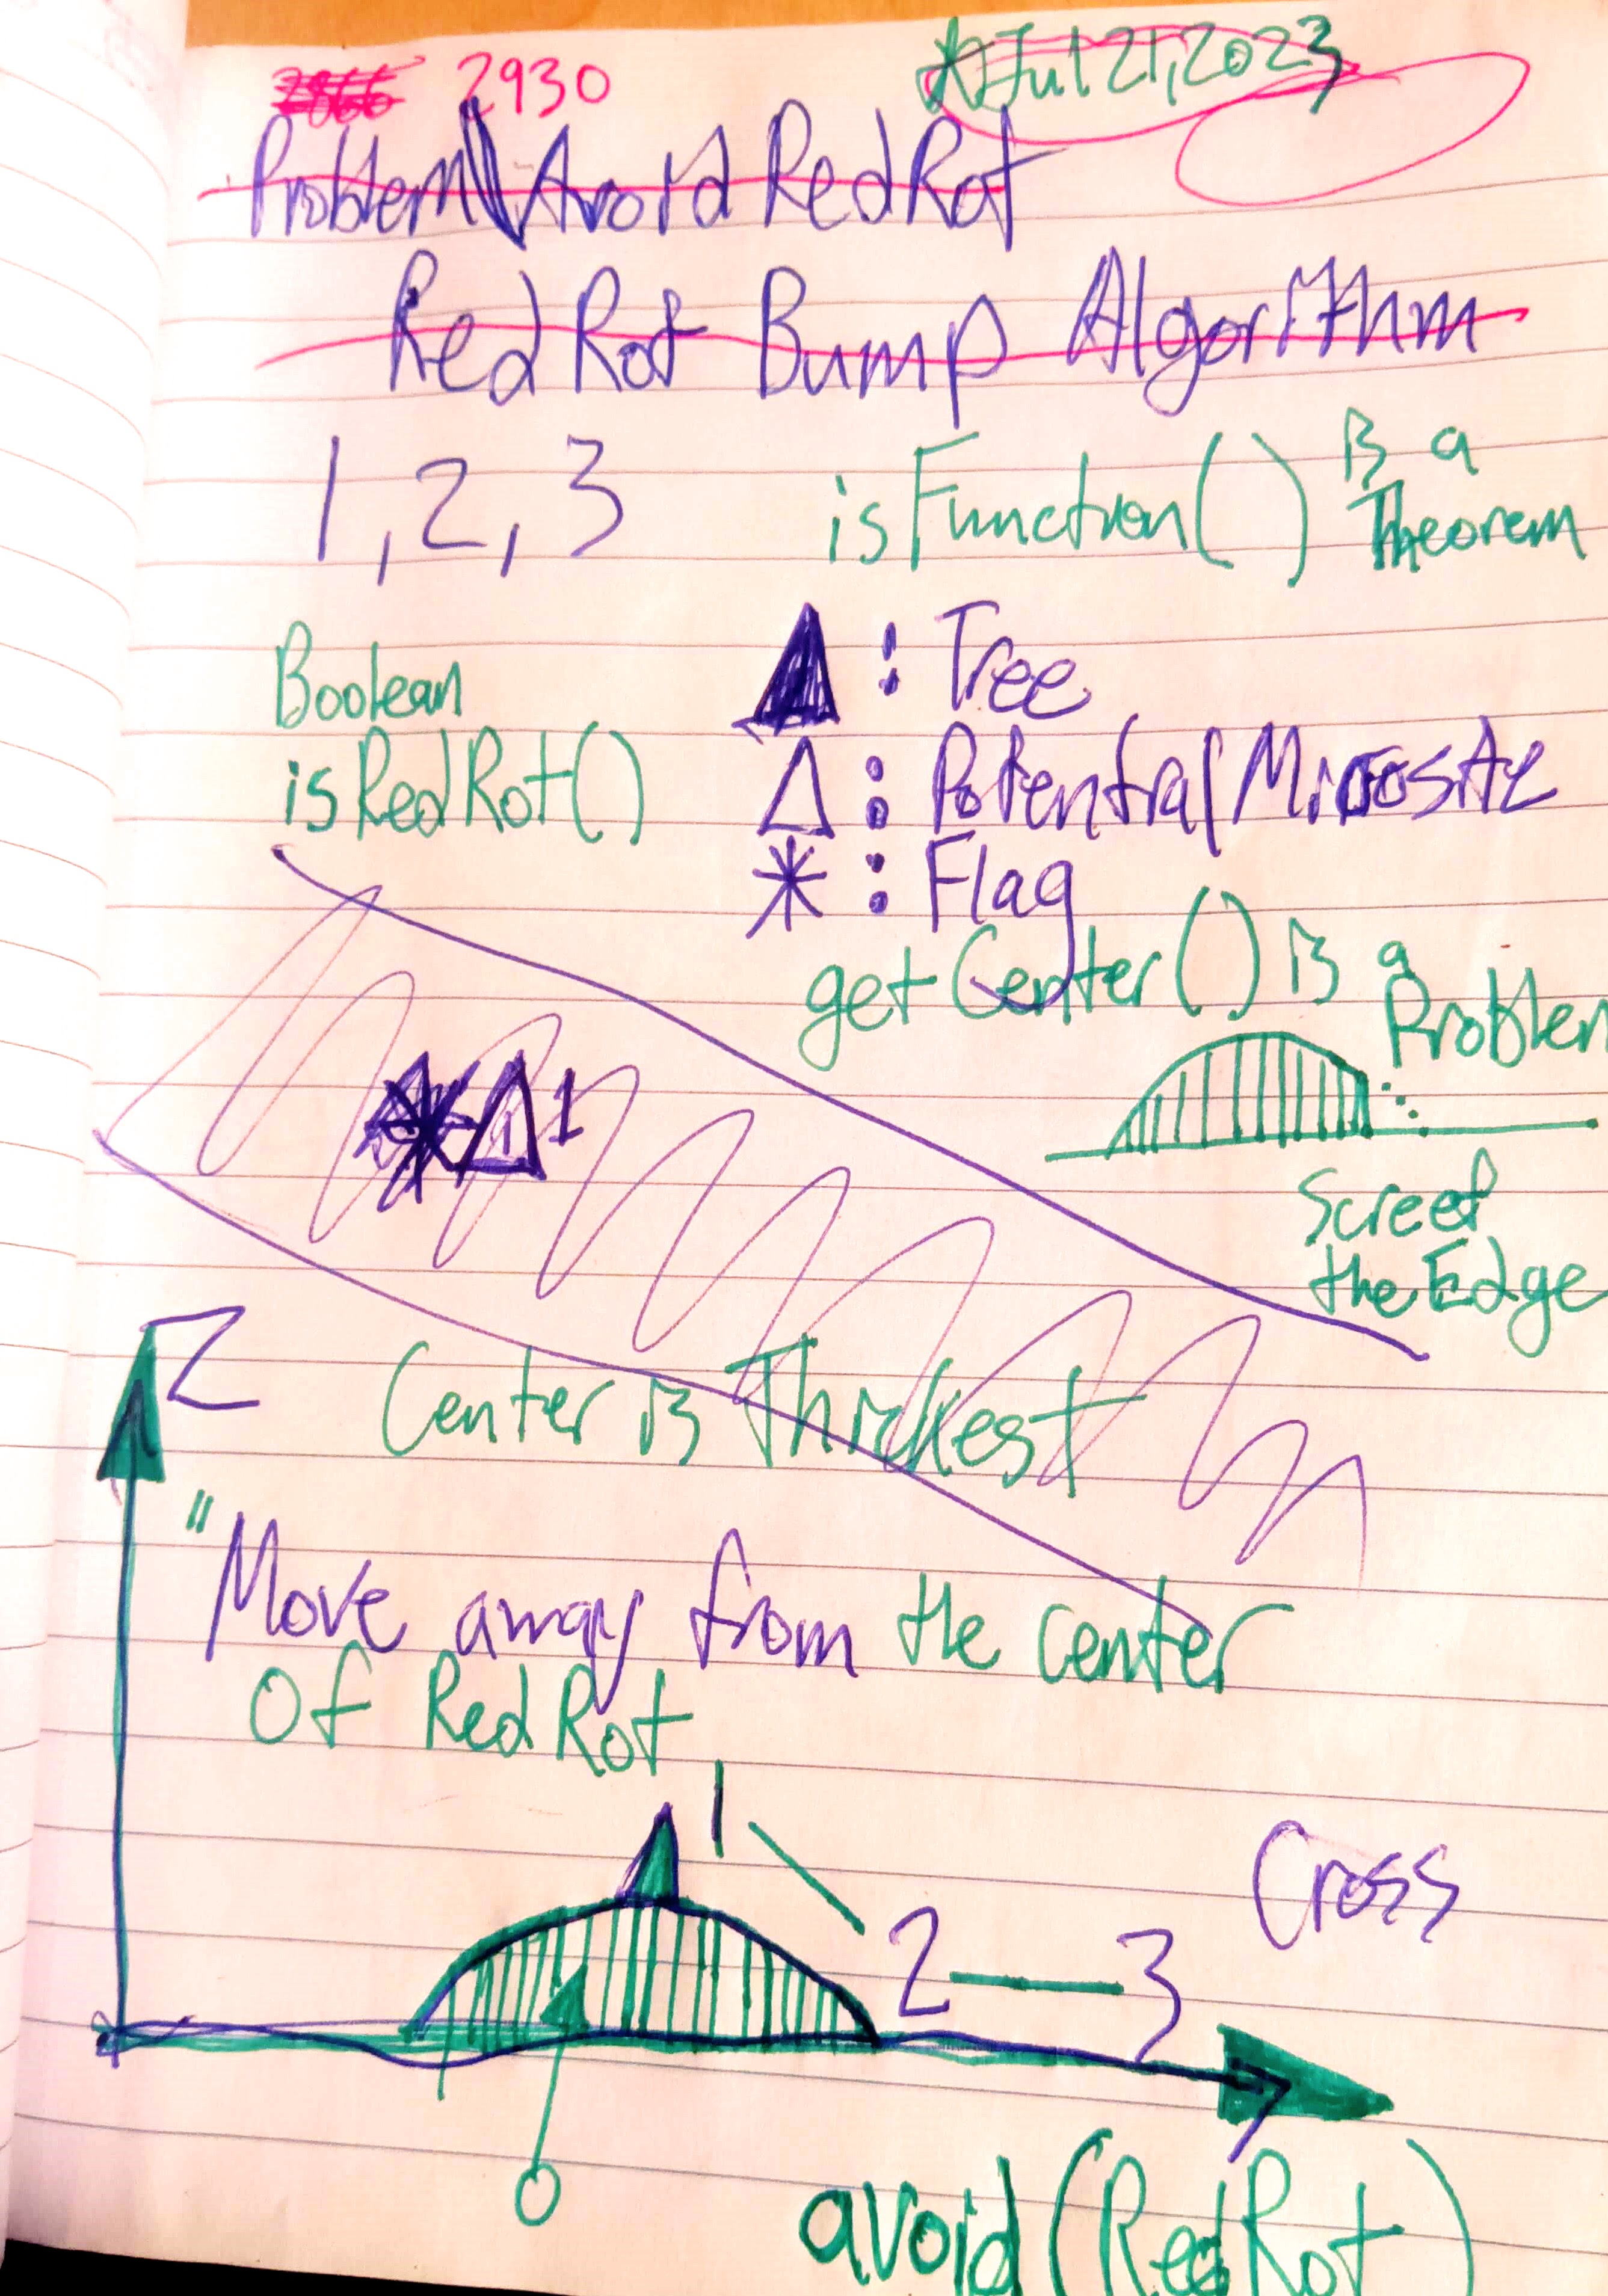 2866 2930
Jul 21, 2023
Problem Avoid Red Rot
Red Rot Bump Algorithm
1, 2, 3
isFunction() is a
Theorem
Boolean
isRedRot()
: Tree
: Potential Microsite
: Flag
getCenter() is a
Problem
1
Screef
the Edge
Z
Center is Thickest
"Move away from the center
of Red Rot
1
2 — 3
Cross
0
avoid(RedRot)